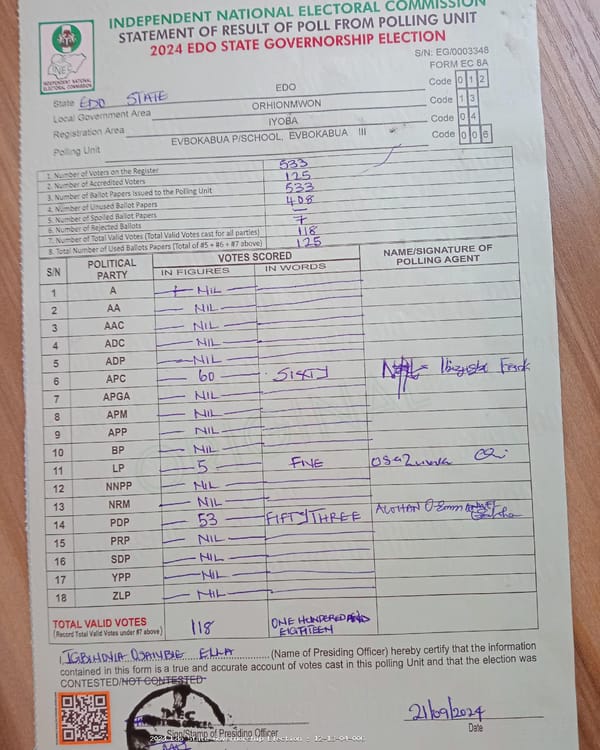 INDEPENDENT NATIONAL ELECTORAL COMMISSION
STATEMENT OF RESULT OF POLL FROM POLLING UNIT
2024 EDO STATE GOVERNORSHIP ELECTION
INDEPENDENT NATIONAL ELECTORAL COMMISSION
S/N: EG/0003348
FORM EC 8A
State EDO STATE EDO Code 0 1 2
Local Government Area ORHIONMWON Code 1 3
Registration Area IYOBA Code 0 4
Polling Unit EVBOKABUA P/SCHOOL, EVBOKABUA III Code 0 0 6
1. Number of Voters on the Register 533
2. Number of Accredited Voters 125
3. Number of Ballot Papers Issued to the Polling Unit 533
4. Number of Unused Ballot Papers 408
5. Number of Spoiled Ballot Papers —
6. Number of Rejected Ballots 7
7. Number of Total Valid Votes (Total Valid Votes cast for all parties) 118
8. Total Number of Used Ballots Papers (Total of #5 + #6 + #7 above) 125
S/N POLITICAL PARTY VOTES SCORED NAME/SIGNATURE OF POLLING AGENT
IN FIGURES IN WORDS
1 A NIL
2 AA NIL
3 AAC NIL
4 ADC NIL
5 ADP NIL
6 APC 60 SIXTY
7 APGA NIL
8 APM NIL
9 APP NIL
10 BP NIL
11 LP 5 FIVE OSAZUWA
12 NNPP NIL
13 NRM NIL
14 PDP 53 FIFTY THREE
15 PRP NIL
16 SDP NIL
17 YPP NIL
18 ZLP NIL
TOTAL VALID VOTES 118 ONE HUNDERED AND EIGHTEEN
(Record Total Valid Votes under #7 above)
I, IGBINOVIA OSAIMBIE ELLA (Name of Presiding Officer) hereby certify that the information
contained in this form is a true and accurate account of votes cast in this polling Unit and that the election was
CONTESTED/NOT CONTESTED
Sign/Stamp of Presiding Officer
21/09/2024
Date